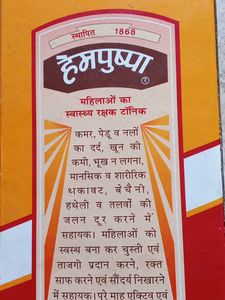 स्थापित 1868
हेमपुष्पा
R
महिलाओं का
स्वास्थ्य रक्षक टॉनिक
कमर, पेडू व नलों
का दर्द, खून की
कमी, भूख न लगना,
मानसिक व शारीरिक
थकावट, बेचैनी,
हथेली व तलवों की
जलन दूर करने में
सहायक। महिलाओं को
स्वस्थ बना कर चुस्ती एवं
ताजगी प्रदान करने, रक्त
साफ करने एवं सौंदर्य निखारने
में सहायक। पूरे माह एक्टिव एवं